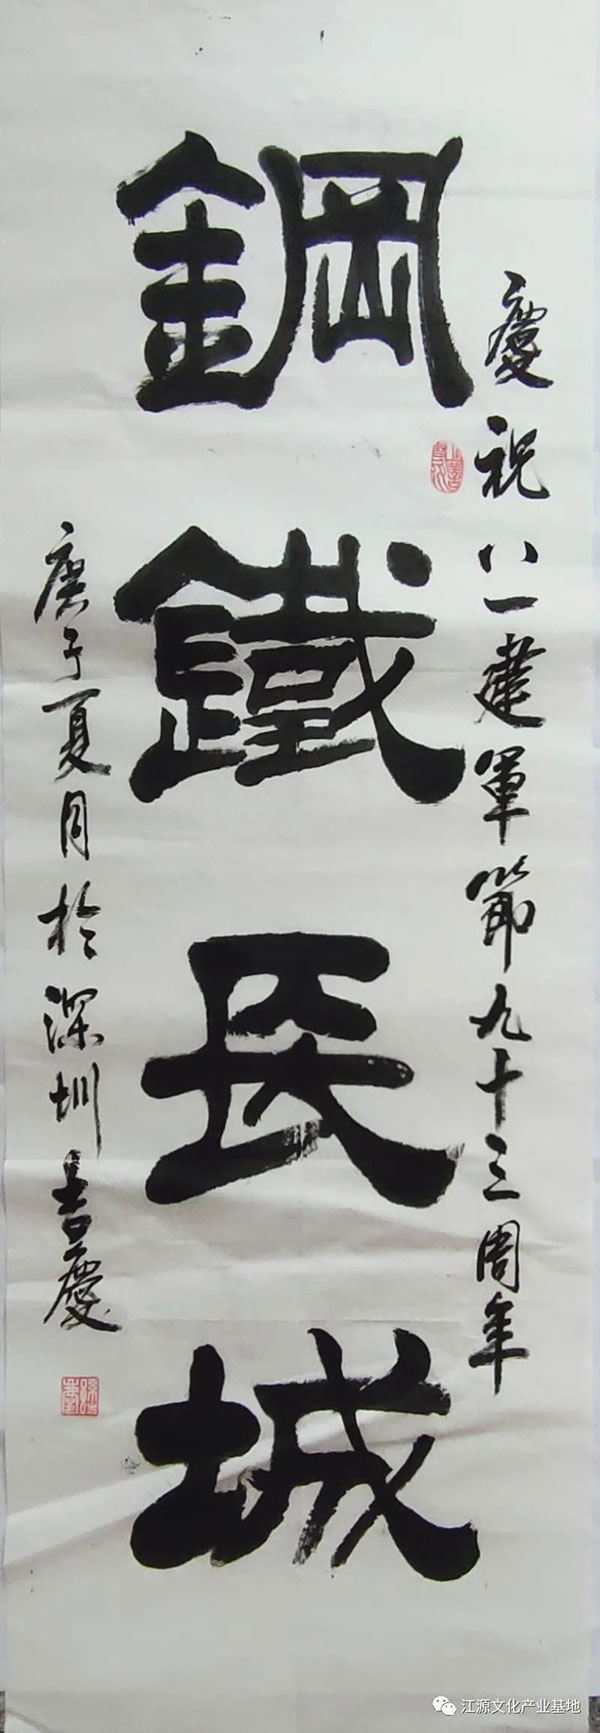 慶祝八一建軍節九十三周年
鋼鐵長城
庚子夏月於深圳吉慶
江源文化产业基地